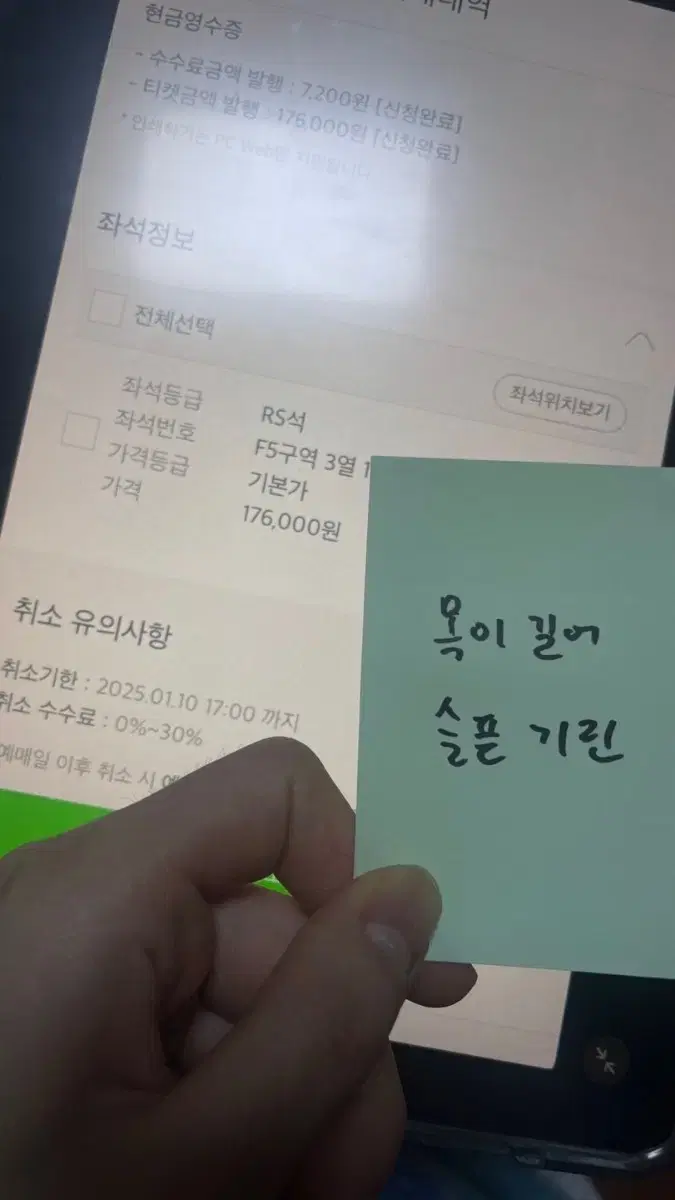 현금영수증
- 수수료금액 발행 : 7,200원 [신청완료]
- 티켓금액 발행 : 176,000원 [신청완료]
* 인쇄하기는 PC Web만 지원됩니다
좌석정보
전체선택
좌석위치보기
좌석등급 RS석
좌석번호 F5구역 3열 1
가격등급 기본가
가격 176,000원
취소 유의사항
취소기한 : 2025.01.10 17:00 까지
취소 수수료 : 0%~30%
예매일 이후 취소 시
목이 길어
슬픈 기린